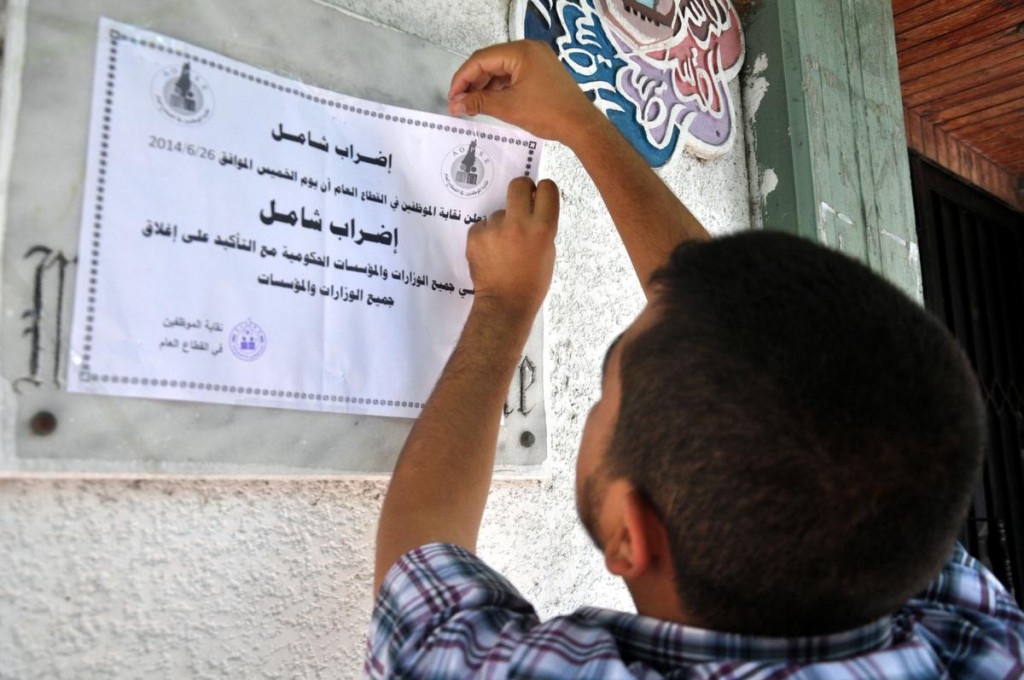 إضراب شامل
تعلن نقابة الموظفين في القطاع العام أن يوم الخميس الموافق 2014/6/26
إضراب شامل
في جميع الوزارات والمؤسسات الحكومية مع التأكيد على إغلاق
جميع الوزارات والمؤسسات
نقابة الموظفين
في القطاع العام